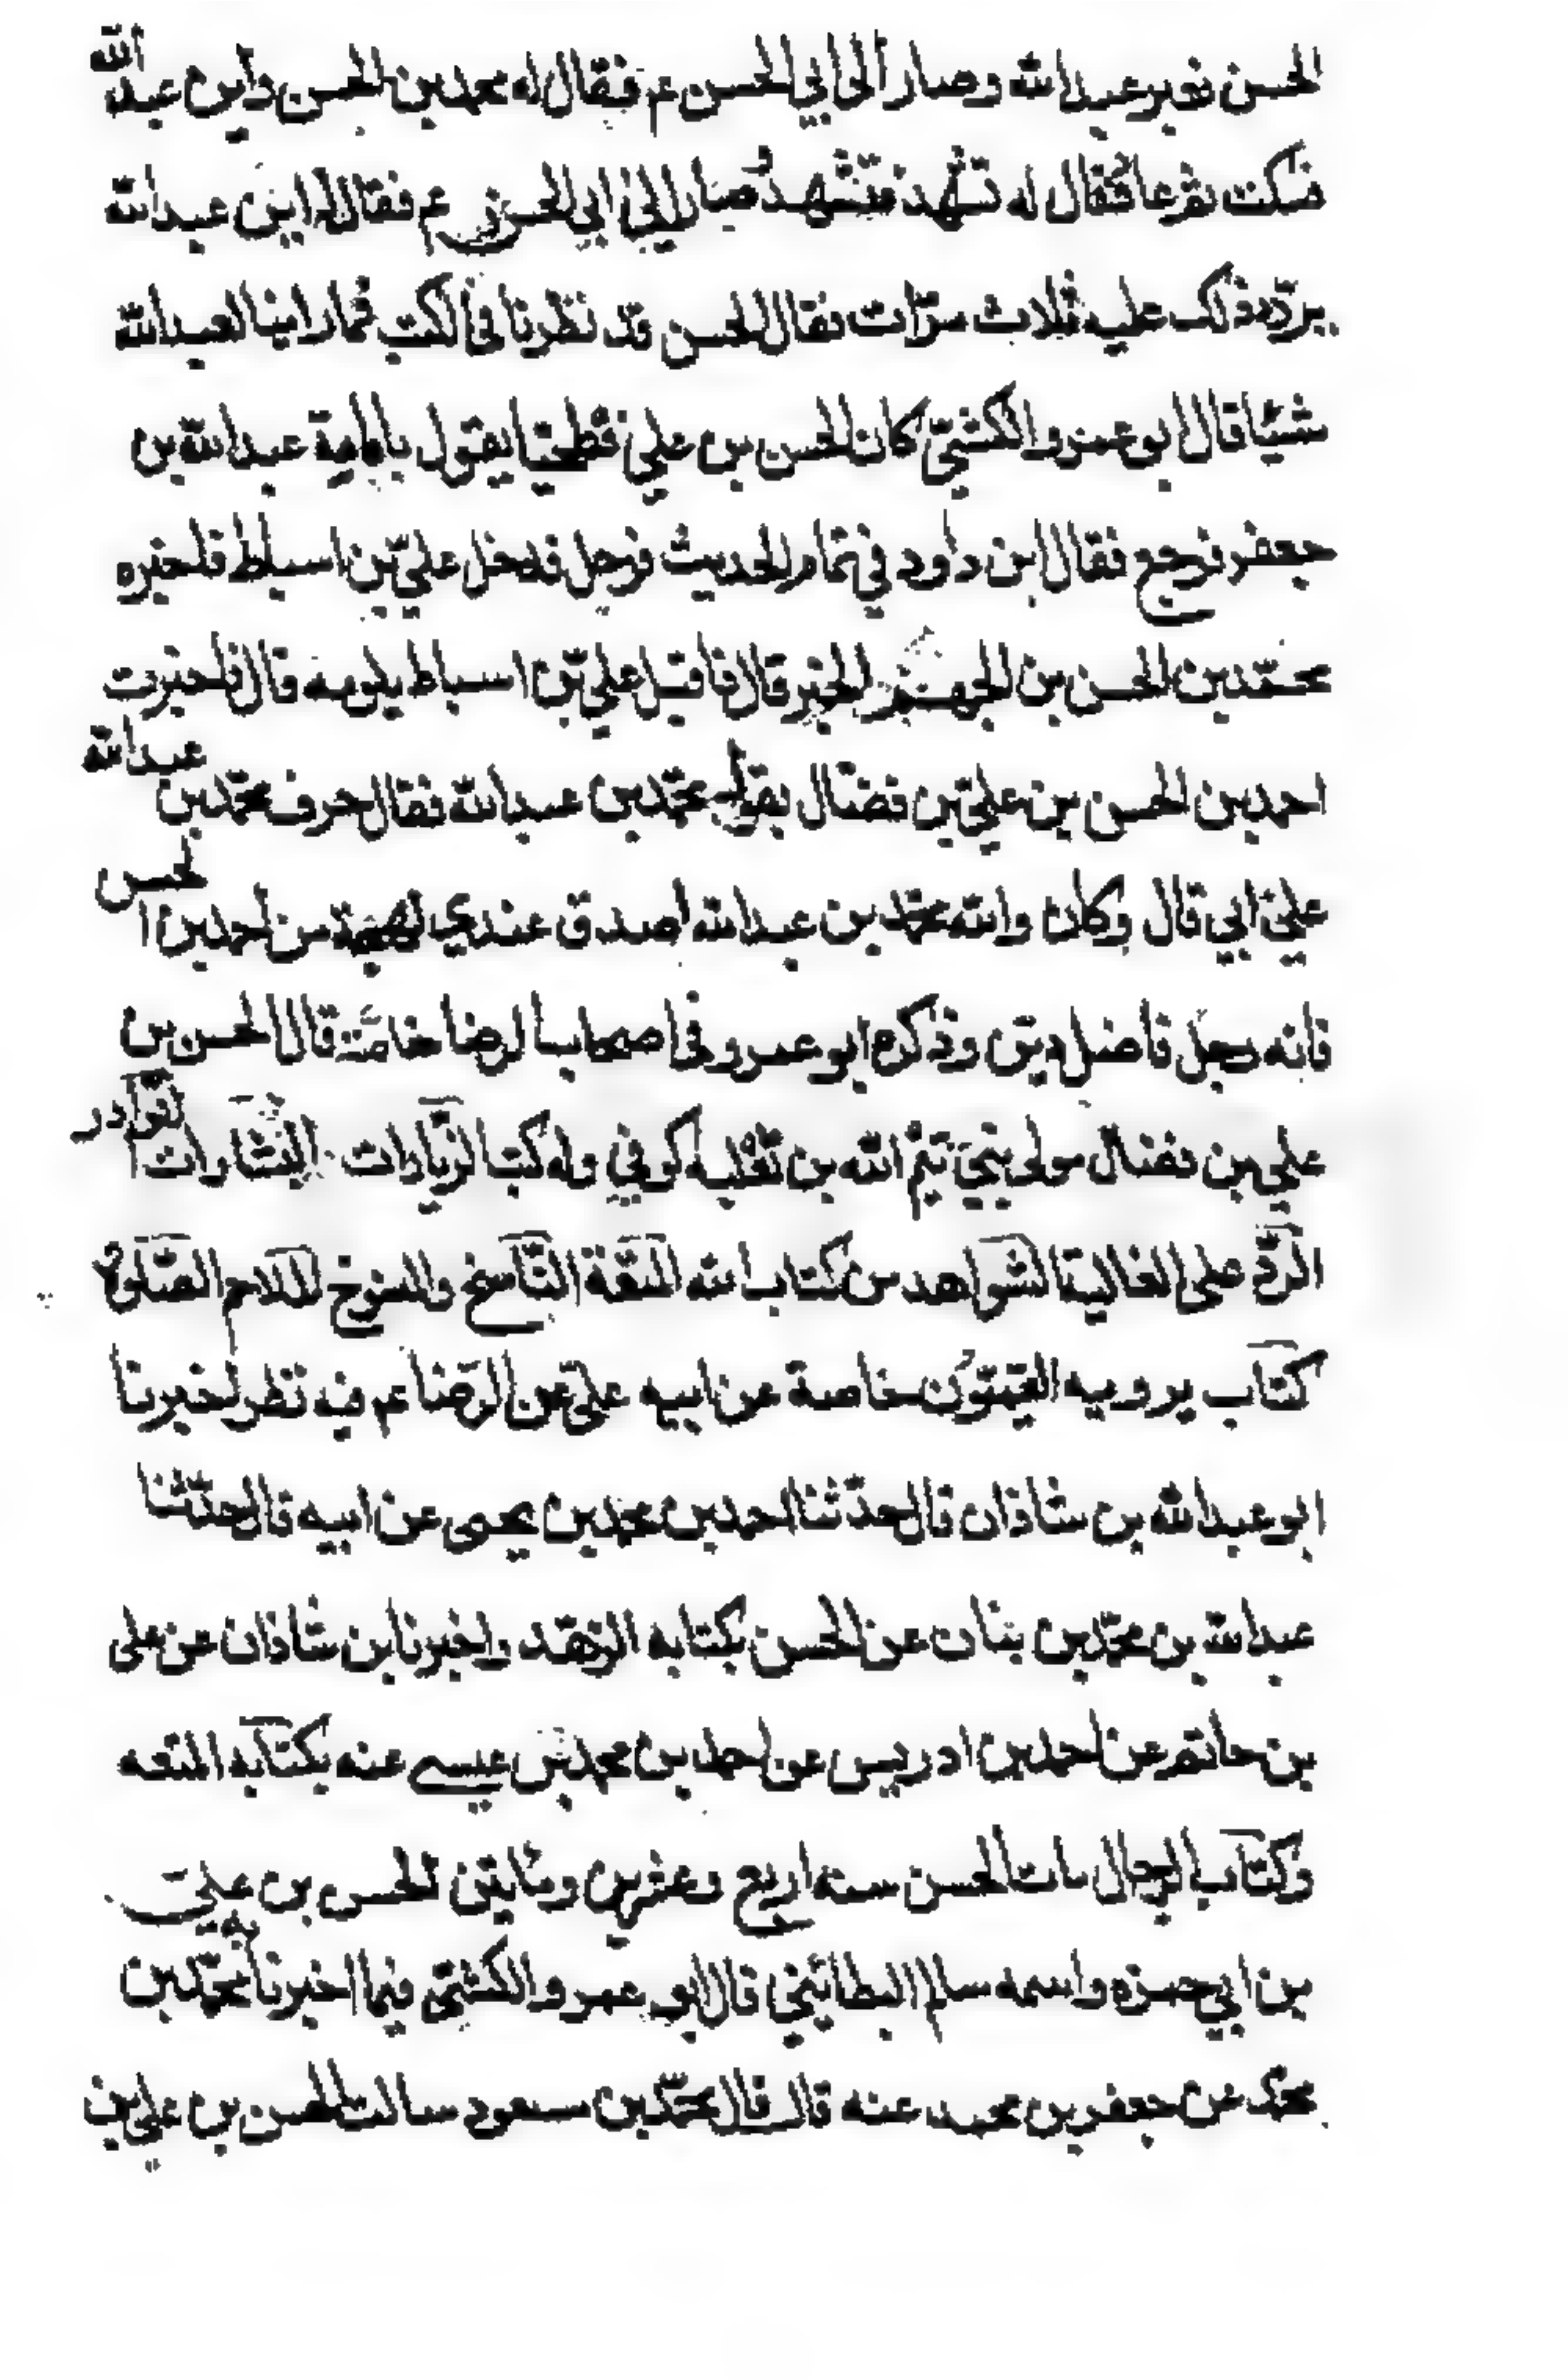 الحسن فعبر عبد الله وصار الى ابي الحسن ع م فقال له محمد بن الحسن واين عبد الله
فسكت ثم عاد فقال له تشهد فتشهد وصار الى ابي الحسن ع م فقال له اين عبد الله
يردد ذلك عليه ثلاث مرات فقال الحسن قد نظرنا في الكتب فما راينا لعبد الله
شيئا قال ابو عمرو الكشي كان الحسن بن علي فطحيا يقول بامامة عبد الله بن
جعفر فرجع فقال ابن داود في تمام الحديث فرحل فدخل علي بن اسباط فاخبره
محمد بن الحسن بن الجهم الخبر قال فاقبل علي بن اسباط يلومه قال فاخبرت
احمد بن الحسن بن علي بن فضال بقول محمد بن عبد الله فقال حرف محمد بن عبد الله
على ابي قال وكان والله محمد بن عبد الله اصدق عندي لهجة من احمد بن الحسن
فانه رجل فاضل دين وذكره ابو عمرو في اصحاب الرضا خاصة قال الحسن بن
علي بن فضال مولى بني تيم الله بن ثعلبه كوفي وله كتب الزيادات البشارات النوادر
الرد على الغالية الشواهد من كتاب الله المتعة الناسخ والمنسوخ الملاحم الصلوة
كتاب يرويه القميون خاصة عن ابيه علي عن الرضا ع م فيه نظر اخبرنا
ابو عبد الله بن شاذان قال حدثنا احمد بن محمد بن يحيى عن ابيه قال حدثنا
عبد الله بن محمد بن بنان عن الحسن بكتابه الزهد واخبرنا ابن شاذان عن على
بن حاتم عن احمد بن ادريس عن احمد بن محمد بن عيسى عنه بكتابه المتعه
وكتاب الرجال مات الحسن سنه اربع وعشرين ومايتين الحسن بن علي
بن ابي حمزه واسمه سالم البطائني قال ابو عمرو الكشي فيما اخبرنا به محمد بن
محمد عن جعفر بن محمد عنه قال قال محمد بن مسعود سالت الحسن بن علي بن